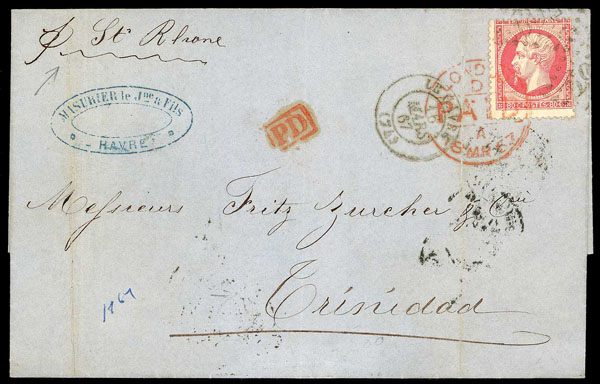 p St. Rhone
MASURIER le Jne & Fils
HAVRE
PD
LE HAVRE
16
MARS
67
(74)
LONDON
PAID
A
MR 67
80 c POSTES 80 c
Messieurs Fritz Zurcher & Cie
Trinidad
1867